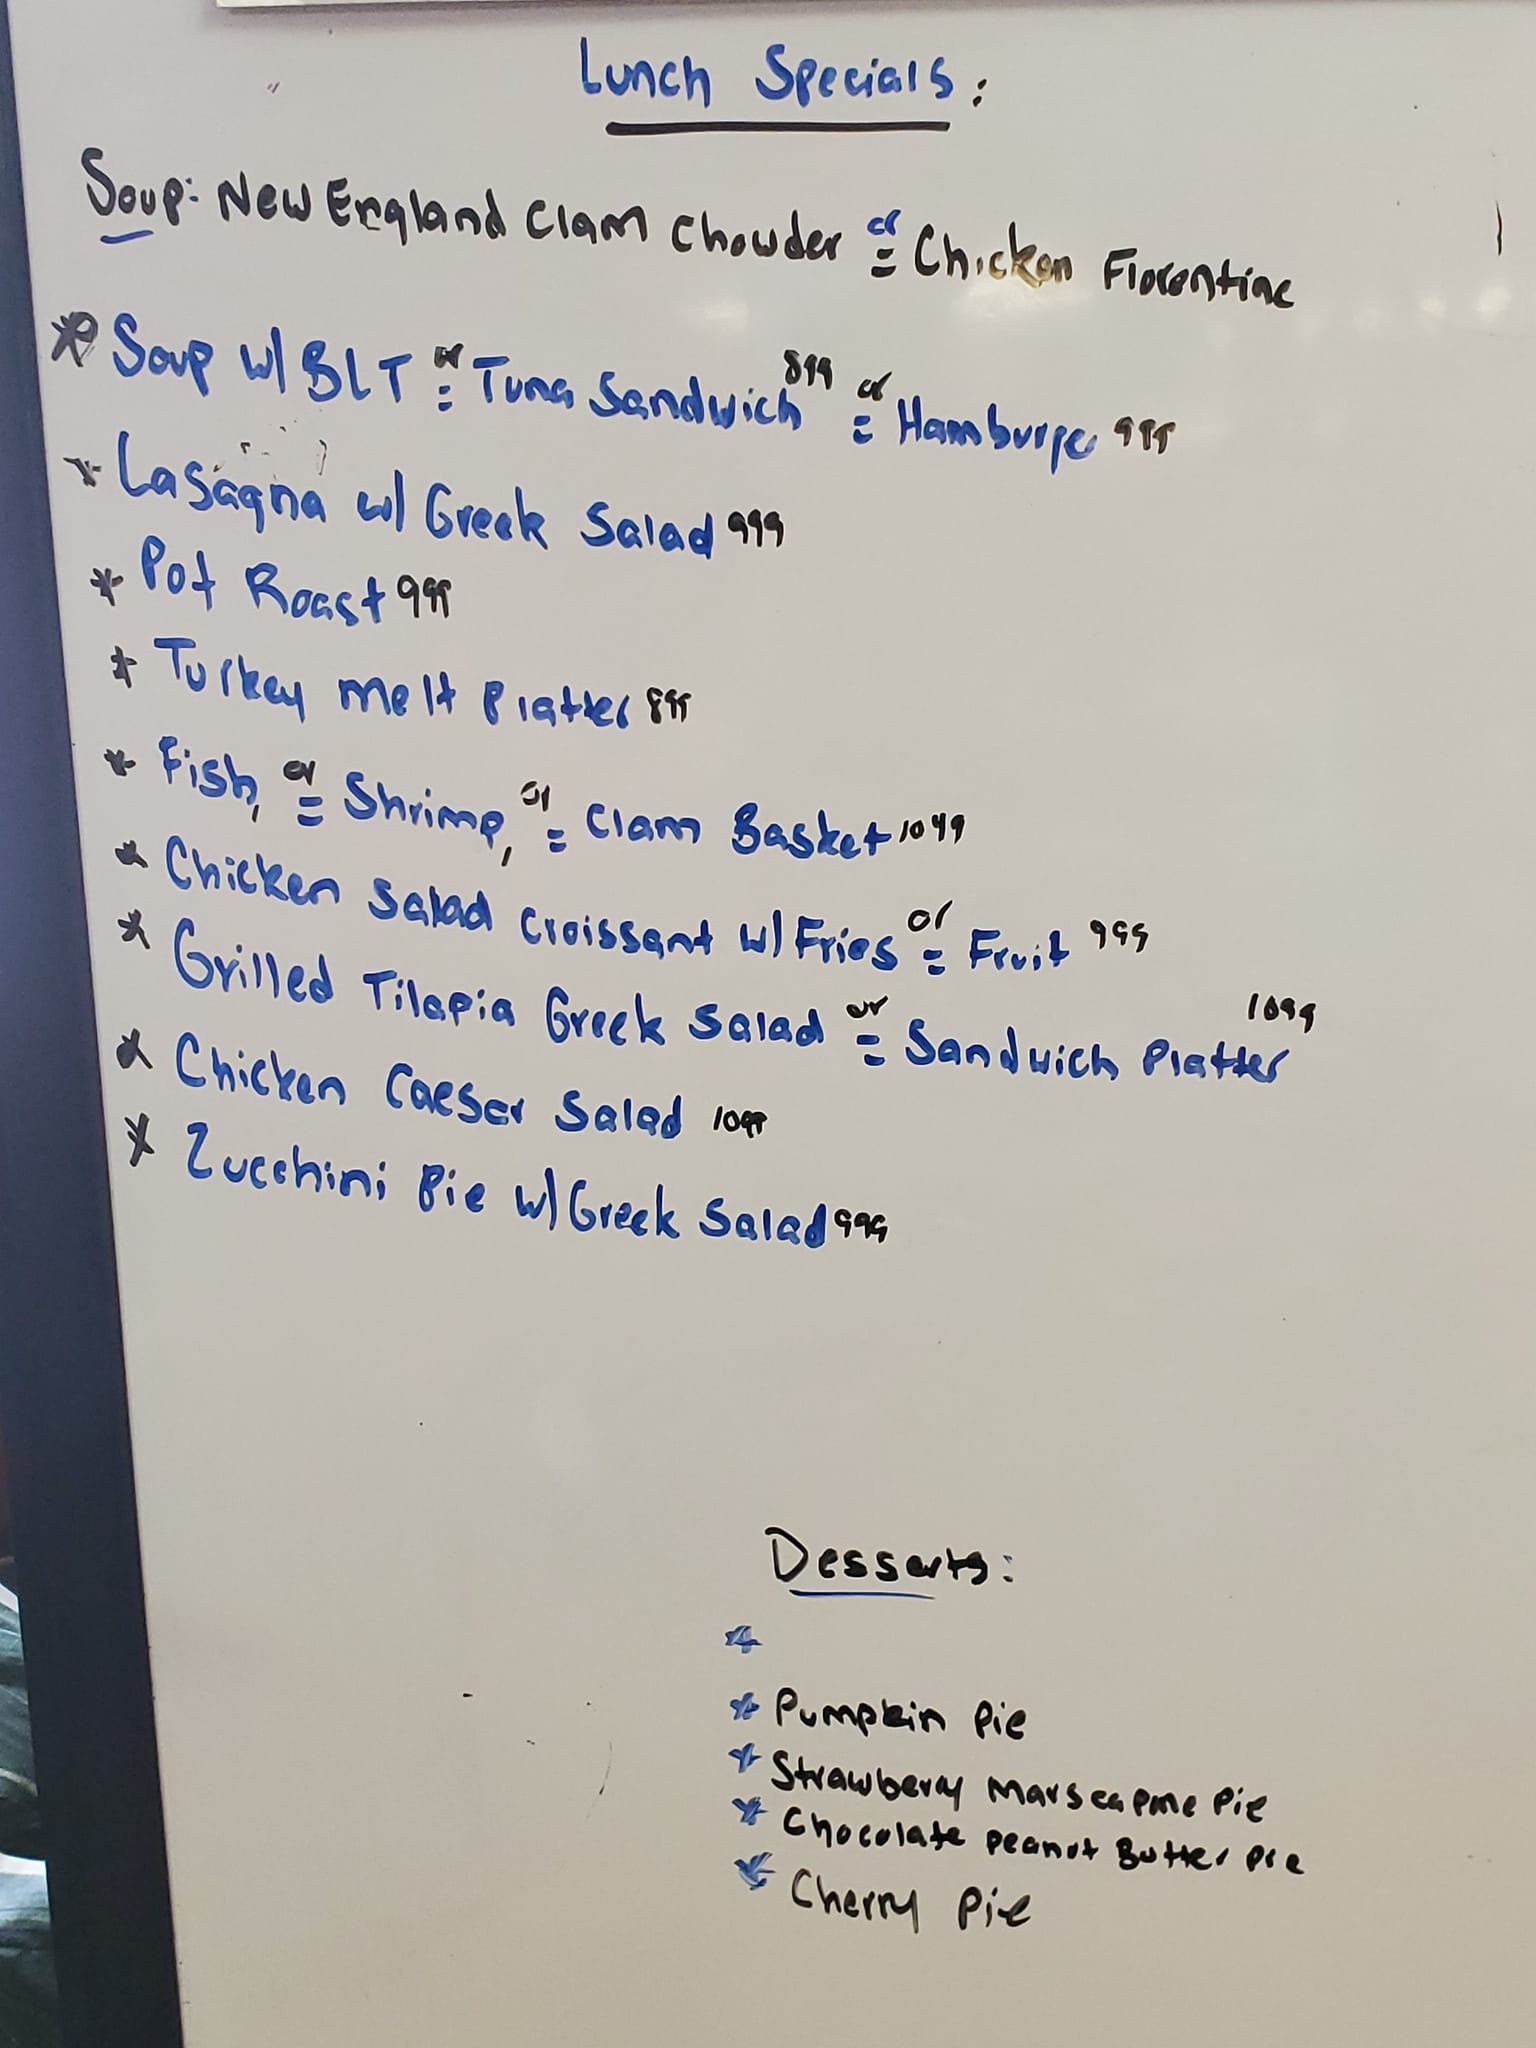 Lunch Specials:
Soup: New England Clam Chowder or Chicken Florentine
* Soup w/ BLT or Tuna Sandwich 899 or Hamburger 999
* Lasagna w/ Greek Salad 999
* Pot Roast 999
* Turkey Melt Platter 899
* Fish, or Shrimp, or Clam Basket 1099
* Chicken Salad Croissant w/ Fries or Fruit 999
* Grilled Tilapia Greek Salad or Sandwich Platter 1099
* Chicken Caeser Salad 1099
* Zucchini Pie w/ Greek Salad 999
Desserts:
*
* Pumpkin Pie
* Strawberry Marscapone Pie
* Chocolate Peanut Butter Pie
* Cherry Pie